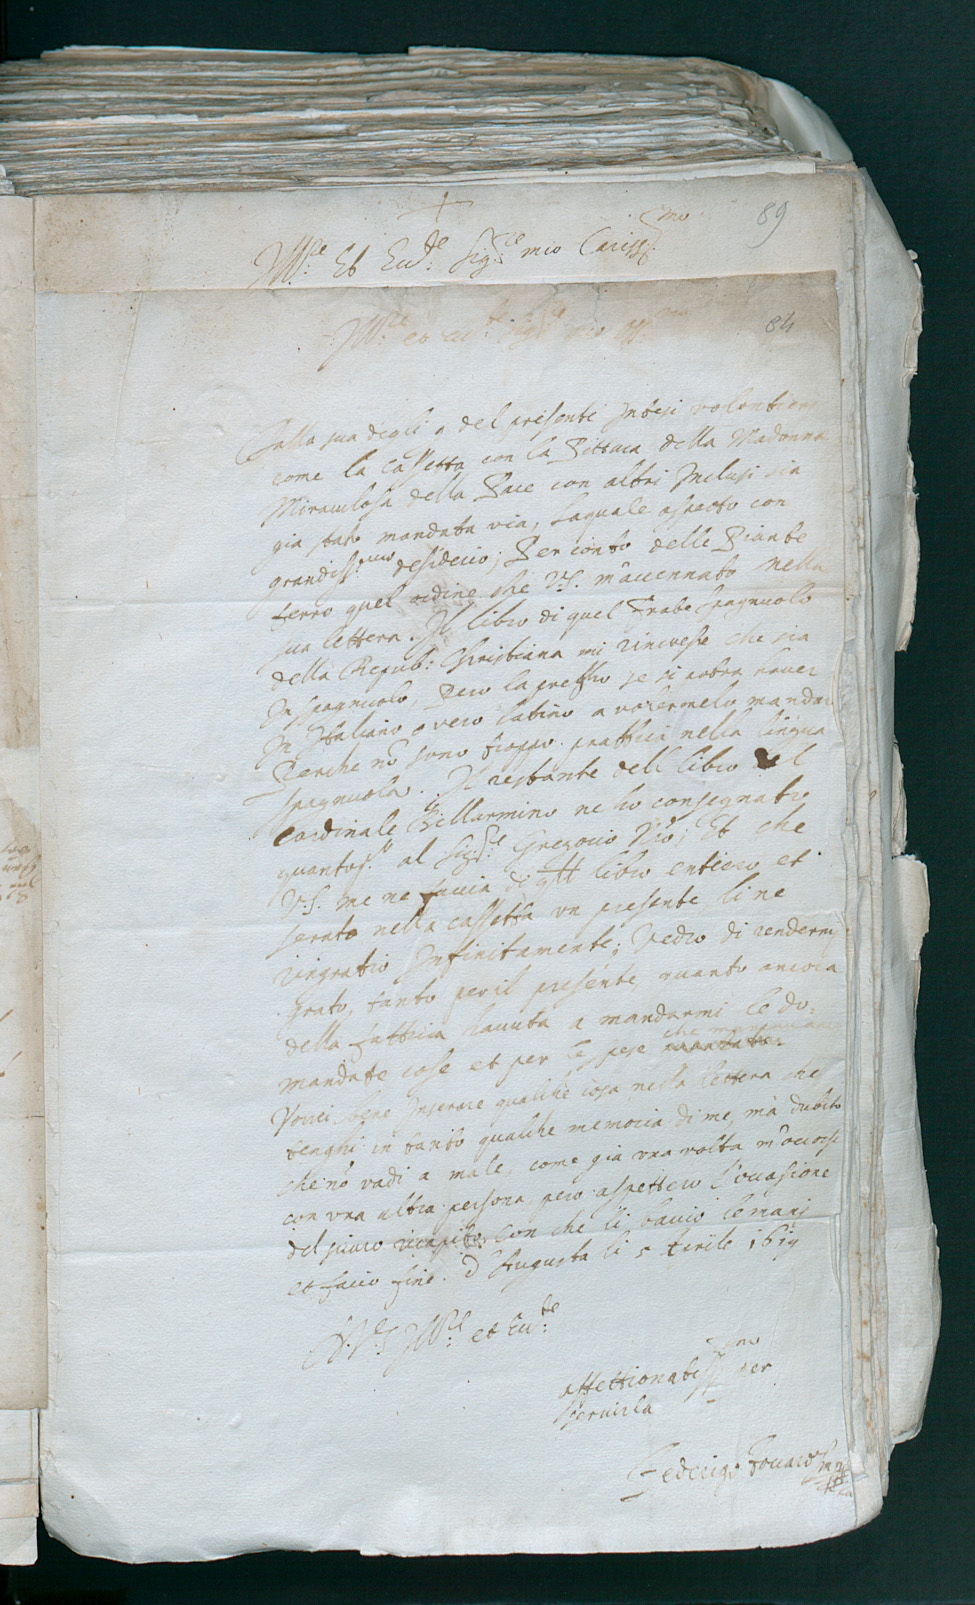 89
Ill.re Et Ecc.te Sig.re mio Cariss.mo
84
Ill.re et ecc.te Sig.re mio
Dalla sua degli 9 del presente Intesi volontieri
come la Cassetta con la Pittura della Madonna
Miraculosa della Pace con altri Inclusi sia
gia stata mandata via, laquale aspecto con
grandiss.mo desiderio; Per conto delle Piante
terro quel ordine che V.S. m'accennato nella
sua lettera. Il libro di quel Frate Spagnuolo
della Repub: Christiana mi rincresse che sia
In Spagnuolo, Pero la pregho se si potra haver
In Italiano o vero latino a volermelo mandar
Perche nõ sono troppo prattico nella lingua
spagnuola. Il restante dell libro del
Cardinale Billarmino ne ho consegnato
al Sig.re Gregorio; Et che
V.S. me ne faccia di libro entiero et
serato nella cassetta un presente li ne
ringratio Infinitamente; Vedro di rendermi
grato, tanto per il presente, quanto ancora
della fatticca havuta a mandarmi le do:
mandate cose et per le spese che
Vorrei bene Inserare qualche cosa nella lettera che
tenghi in tanto qualche memoria di me, mà dubito
che nõ vadi a male, come già una volta m'occorse
con una altra persona, pero aspettero l'occasione
del sicuro ricapito, Con che li baccio le mani
et faccio fine. d'Augusta li 5 Aprile 1619
D.V.S. Ill.re et Ecc.te
affettionatiss.mo per
servirla
Federigo